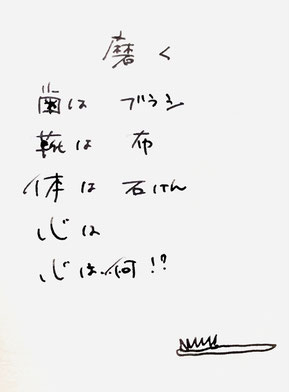 磨く
歯は ブラシ
靴は 布
体は 石けん
心は
心は…何!?